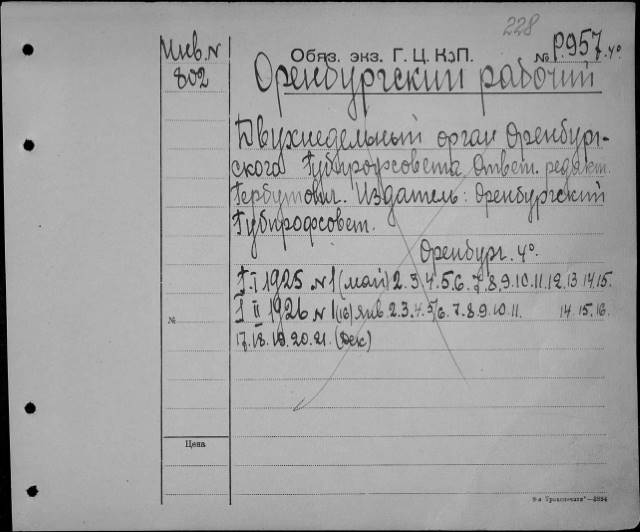 228
Инв. №
802
Обяз. экз. Г. Ц. КнП. № Р.957. 4°
Оренбургский рабочий
Двухнедельный орган Оренбург-
ского Губпрофсовета. Ответ. редакт.
Издатель: Оренбургский
Губпрофсовет.
Оренбург. 4°.
I 1925 № 1 (май) 2. 3. 4. 5. 6. 7. 8. 9. 10. 11. 12. 13 14. 15.
II 1926 № 1(16) янв. 2. 3. 4. 5/6. 7. 8. 9. 10. 11. 14. 15. 16.
17. 18. 19. 20. 21. (Дек)
№
Цена